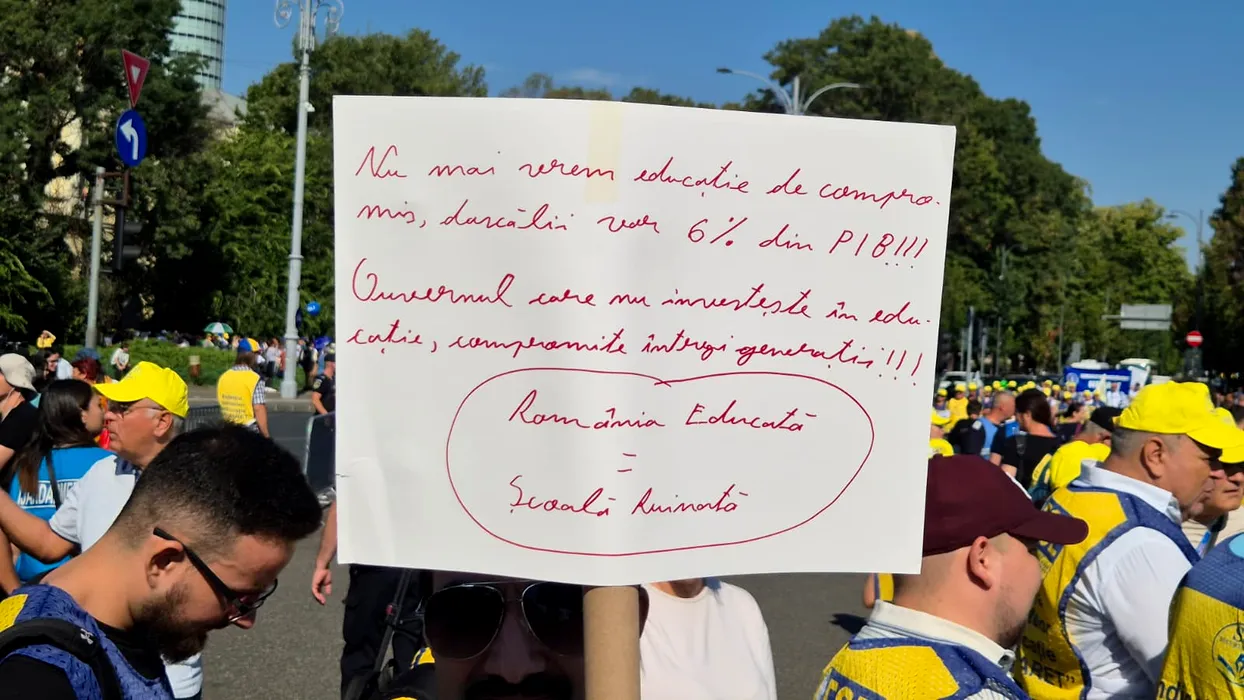 Nu mai vrem educație de compro-
mis, dascălii vor 6% din PIB!!!
Guvernul care nu investește în edu-
cație, compromite întregi generații!!!
România Educată
=
Școală Ruinată